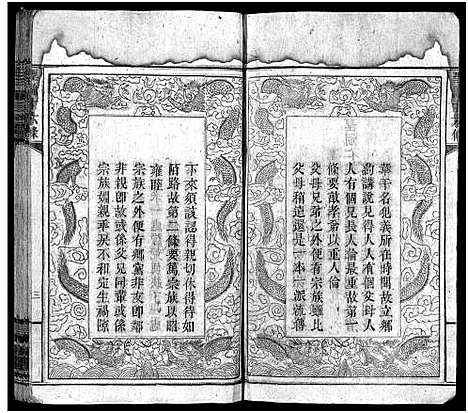 華于名犯義所在時聞故立鄉
約講說見得人人有個父母人
人有個兄長人倫最重故第一
條要敦孝弟以重人倫
父母兄弟之外便有宗族雖比
父母稍遠還是一本一派流傳
下來須該認得親切休得待如
陌路故第二條要篤宗族以昭
雍睦
宗族之外便有鄉黨非友即鄰
非親即故或係父兄同輩或係
宗族姻親乖戾不和定生禍隙
三